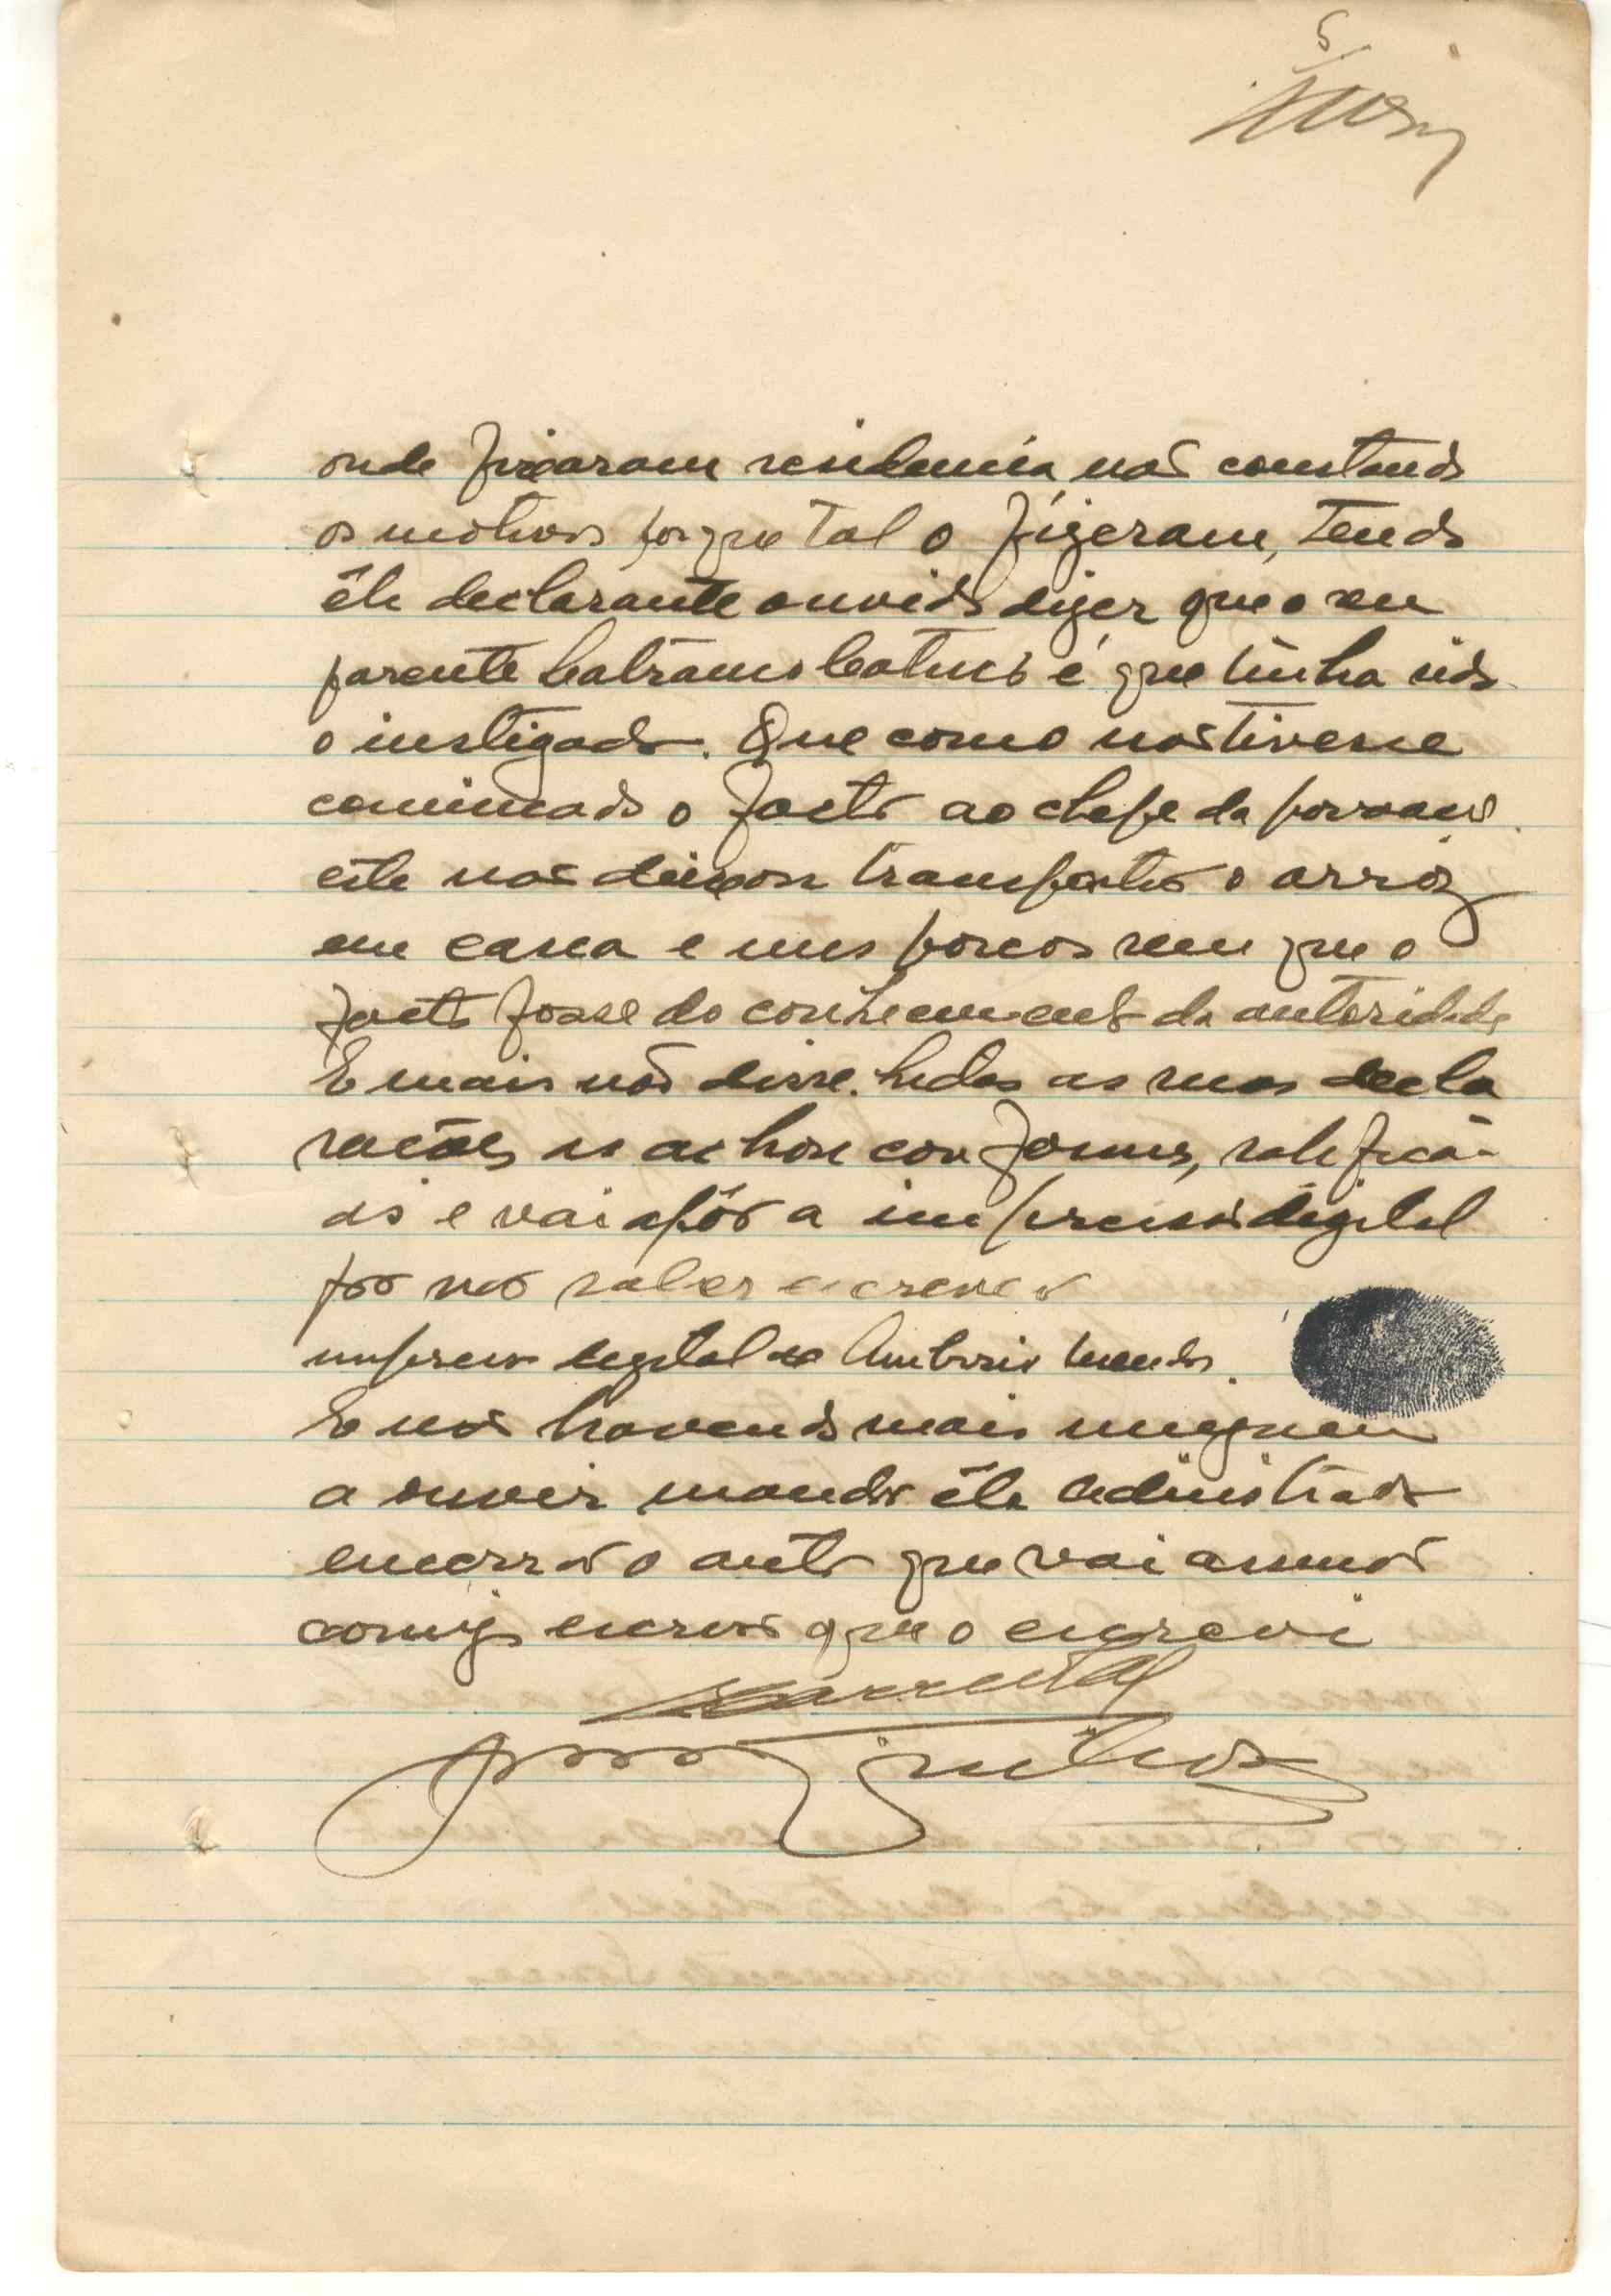 5
onde fixaram residencia não constando
os motivos porque tal o fizeram, tendo
êle declarante ouvido dizer que o seu
parente é que tinha sido
o instigador. Que como não tivesse
comunicado o facto ao chefe da povoação
este não deixou transportar o arroz
em casca e uns porcos sem que o
facto fosse do conhecimento da autoridade
E mais não disse. Lidas as suas decla
rações as achou conformes, ratifican-
do e vai apôr a impressão digital
por não saber escrever
impressão digital de Ambrosio Mendes.
E não havendo mais ninguem
a ouvir mandou êle administrador
encerrar o auto que vai assinar
comigo escrivão que o escrevi